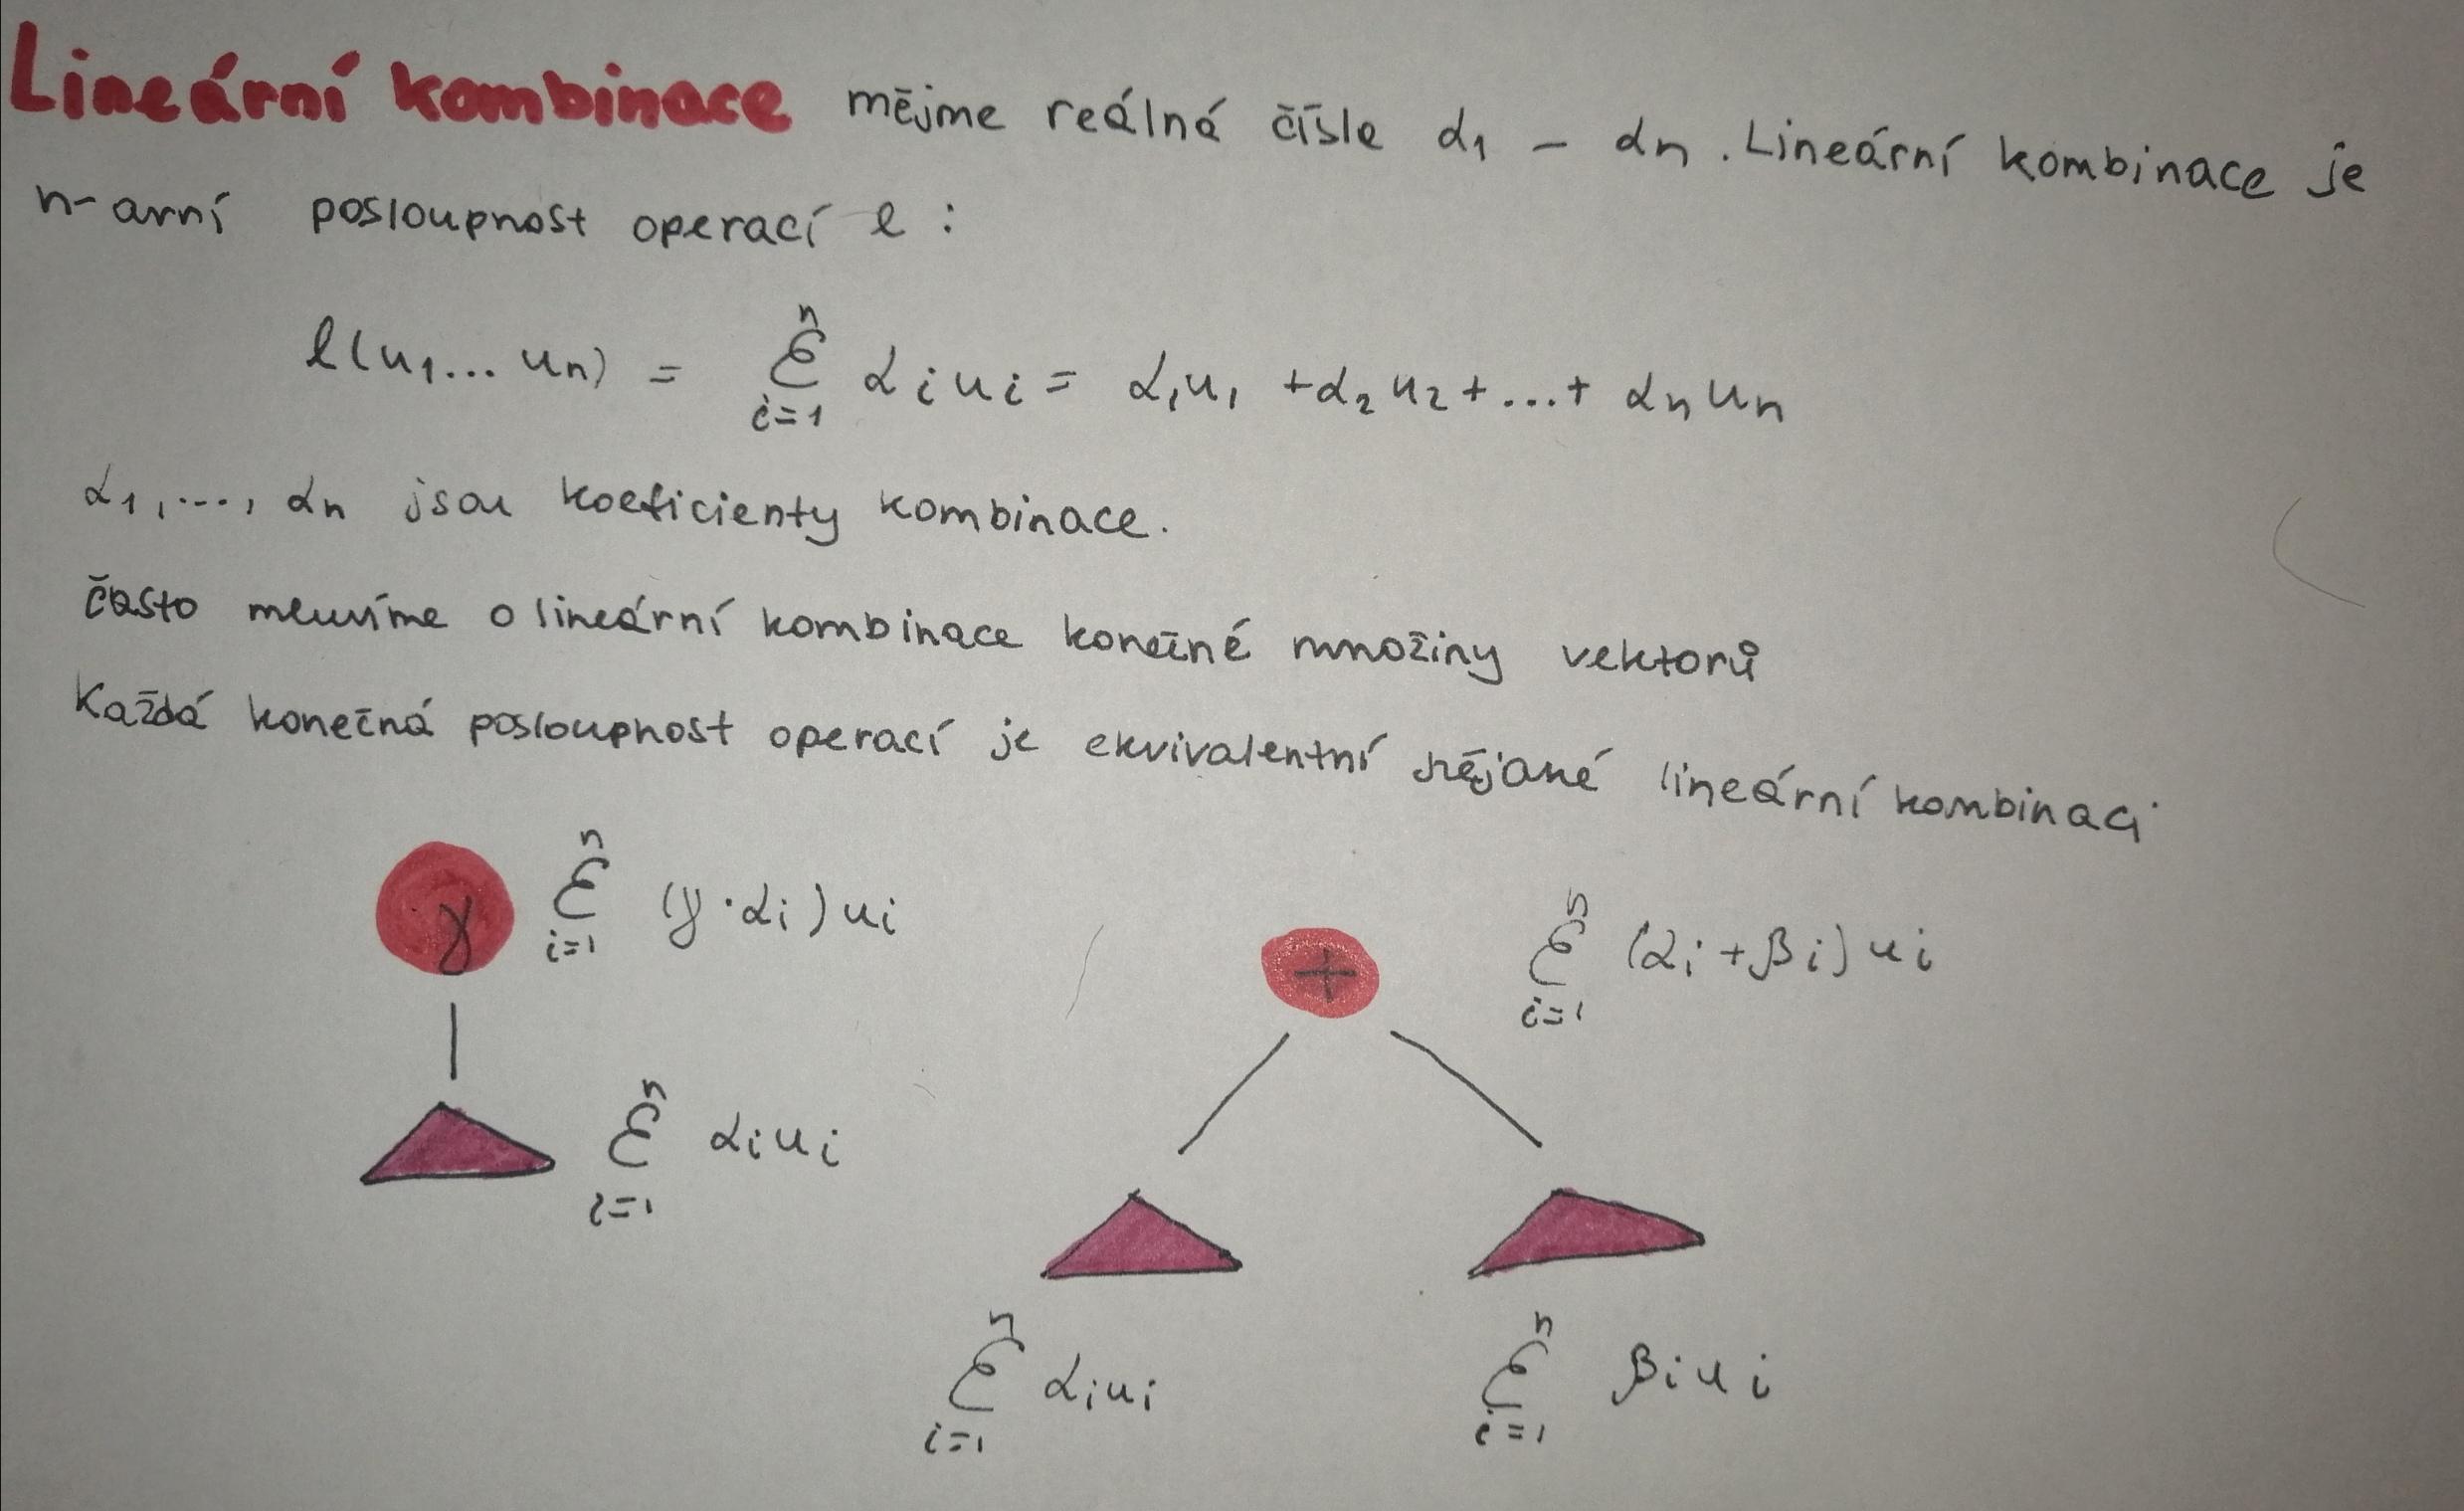 Lineární kombinace mějme reálná čísle α₁ – αn. Lineární kombinace je
n-arní posloupnost operací l :
l(u₁... un) = n Σ i=1 αi ui = α₁u₁ + α₂u₂ + ... + αn un
α₁, ..., αn jsou koeficienty kombinace.
často mluvíme o lineární kombinace konečné množiny vektorů
Každá konečná posloupnost operací je ekvivalentní nějané lineární kombinaci
γ n Σ i=1 (γ · αi) ui
+ n Σ i=1 (αi + βi) ui
n Σ i=1 αi ui
n Σ i=1 αi ui
n Σ i=1 βi ui